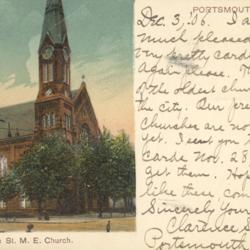 PORTSMOUT
Dec. 3, '06. I
much pleased
very pretty card
Again please.
of the oldest chur
the city. Our pre
Churches are no
yet. I sent you
Cards Nov. 28
get them. Hop
like these com
Sincerely You
Clarence
Portsmouth
St. M. E. Church.